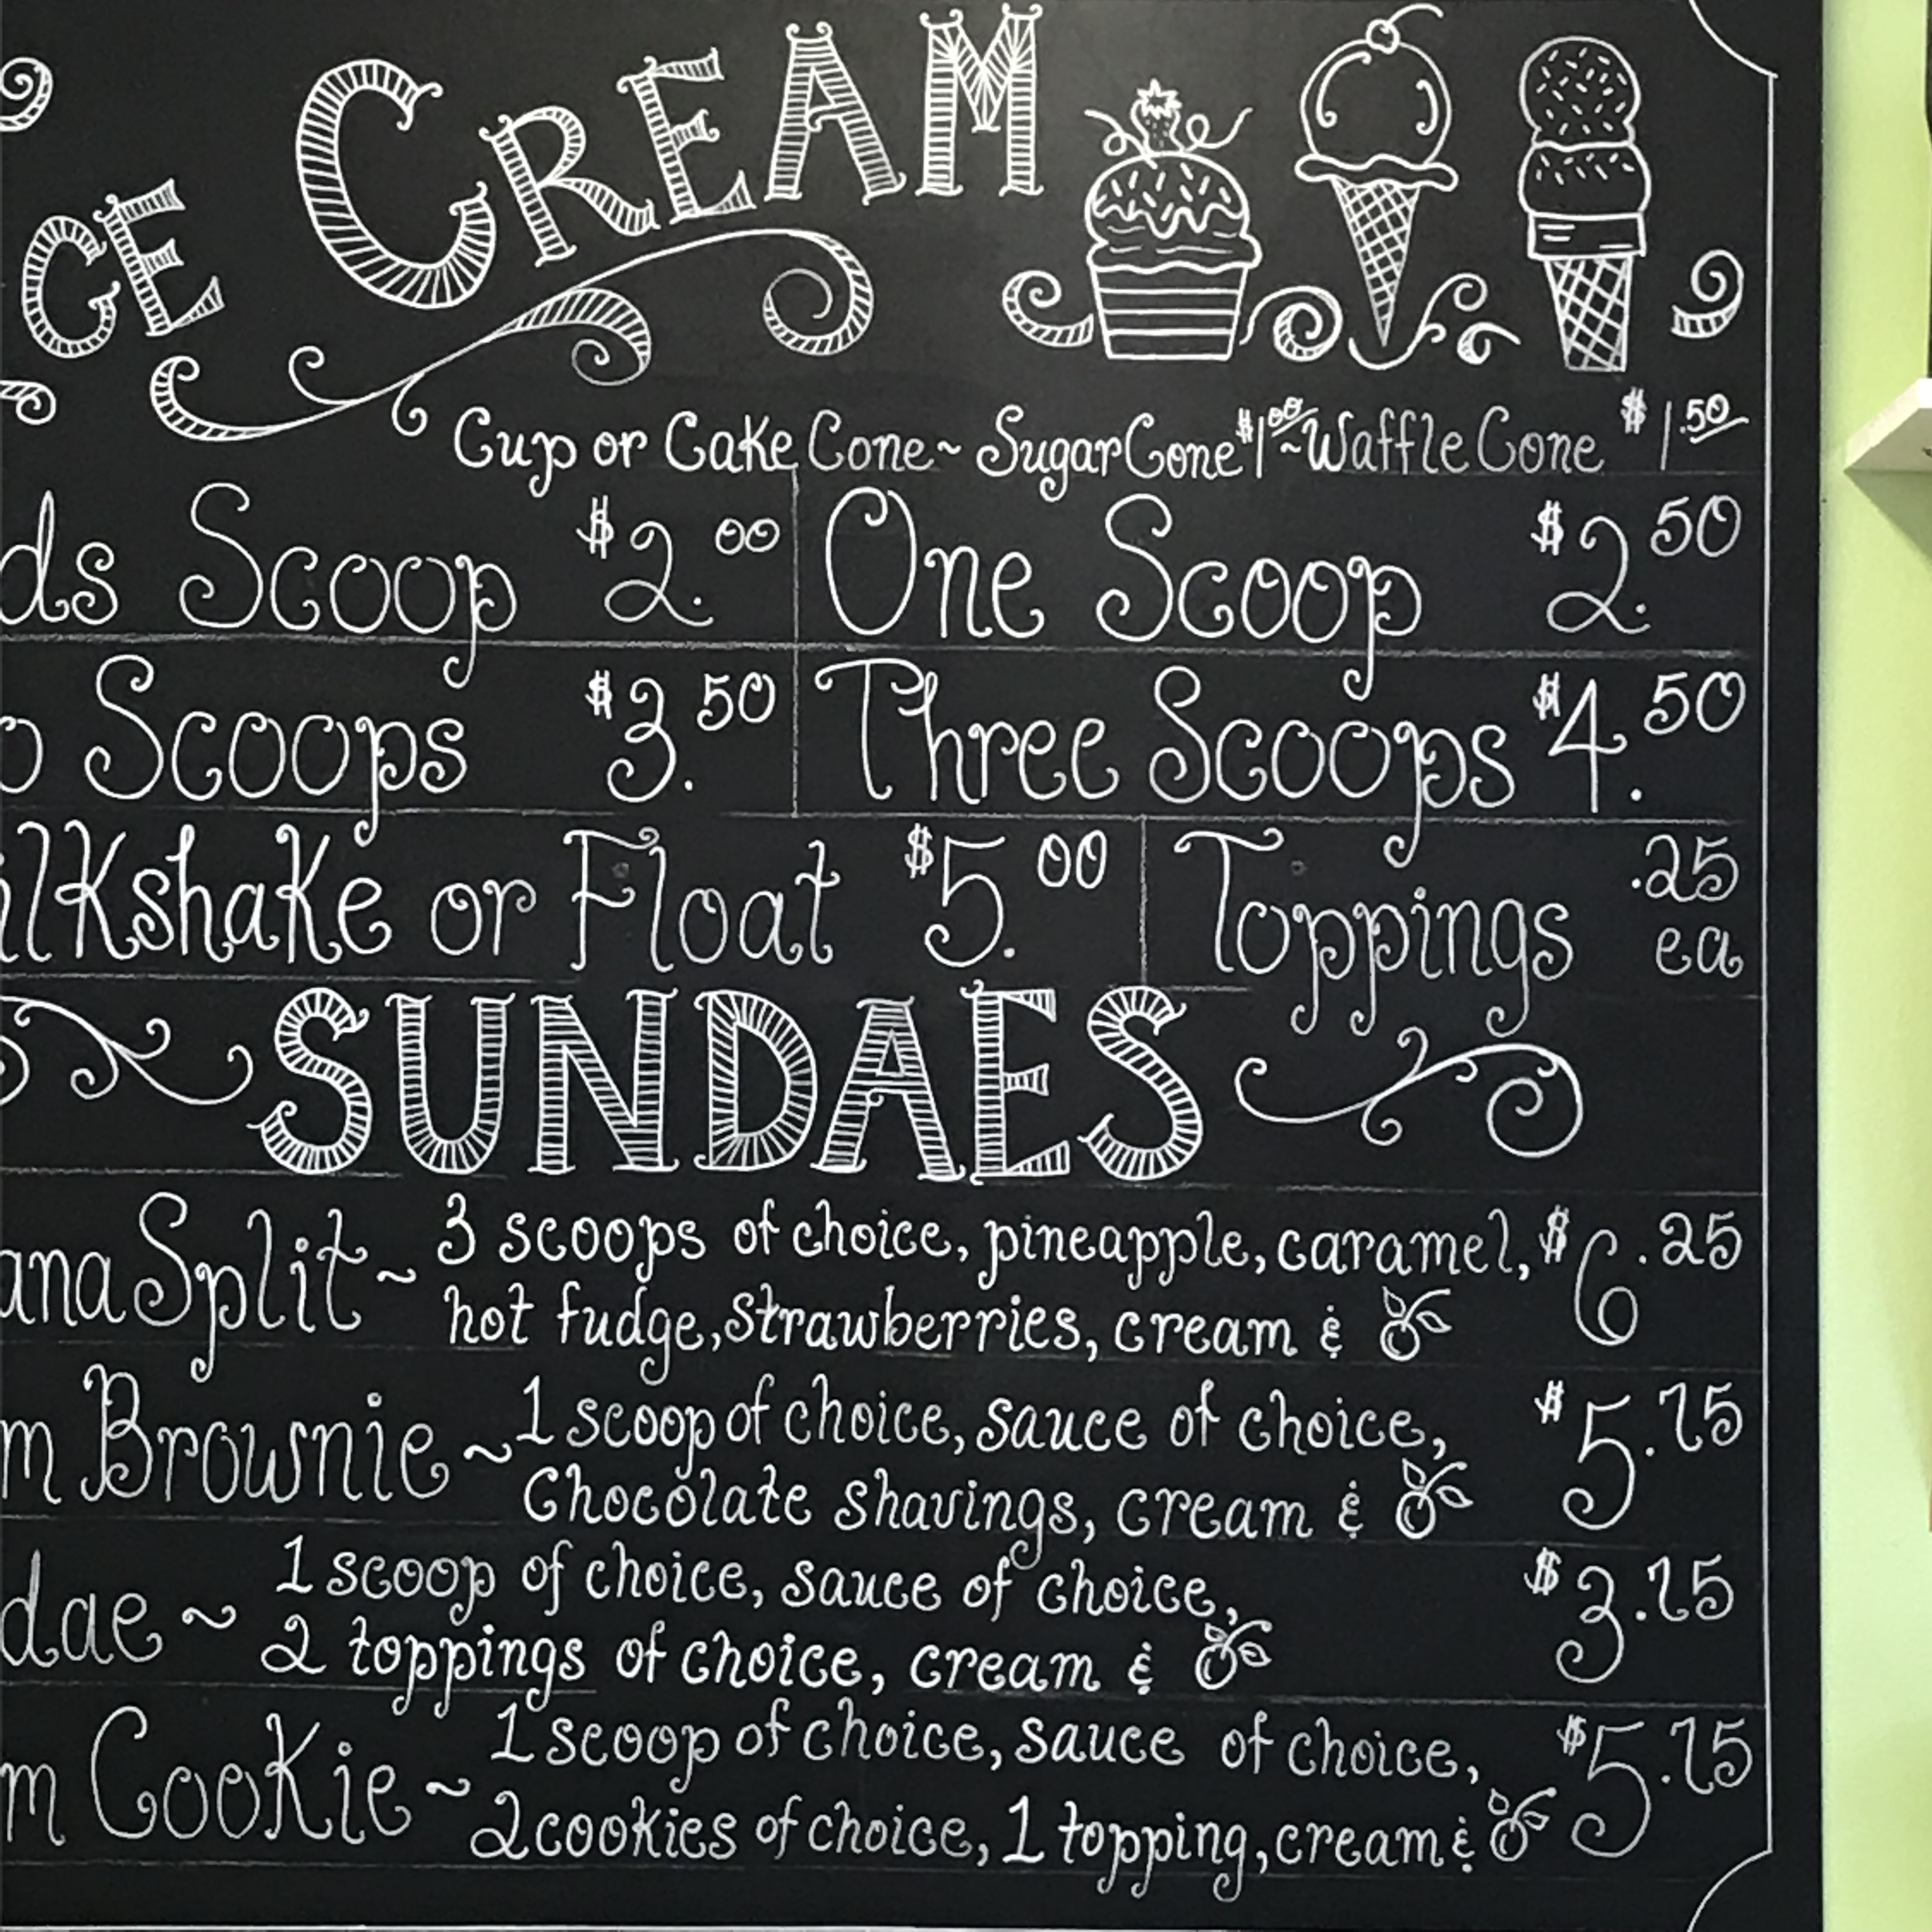 CE CREAM
Cup or Cake Cone~ Sugar Cone $1.00~Waffle Cone $1.50
ds Scoop $2.00 One Scoop $2.50
o Scoops $3.50 Three Scoops $4.50
ilkshake or Float $5.00 Toppings .25 ea
SUNDAES
ana Split~ 3 scoops of choice, pineapple, caramel, $6.25
hot fudge, strawberries, cream &
m Brownie~ 1 scoop of choice, sauce of choice, $5.75
Chocolate shavings, cream &
dae~ 1 scoop of choice, sauce of choice, $3.75
2 toppings of choice, cream &
m Cookie~ 1 scoop of choice, sauce of choice, $5.75
2 cookies of choice, 1 topping, cream &